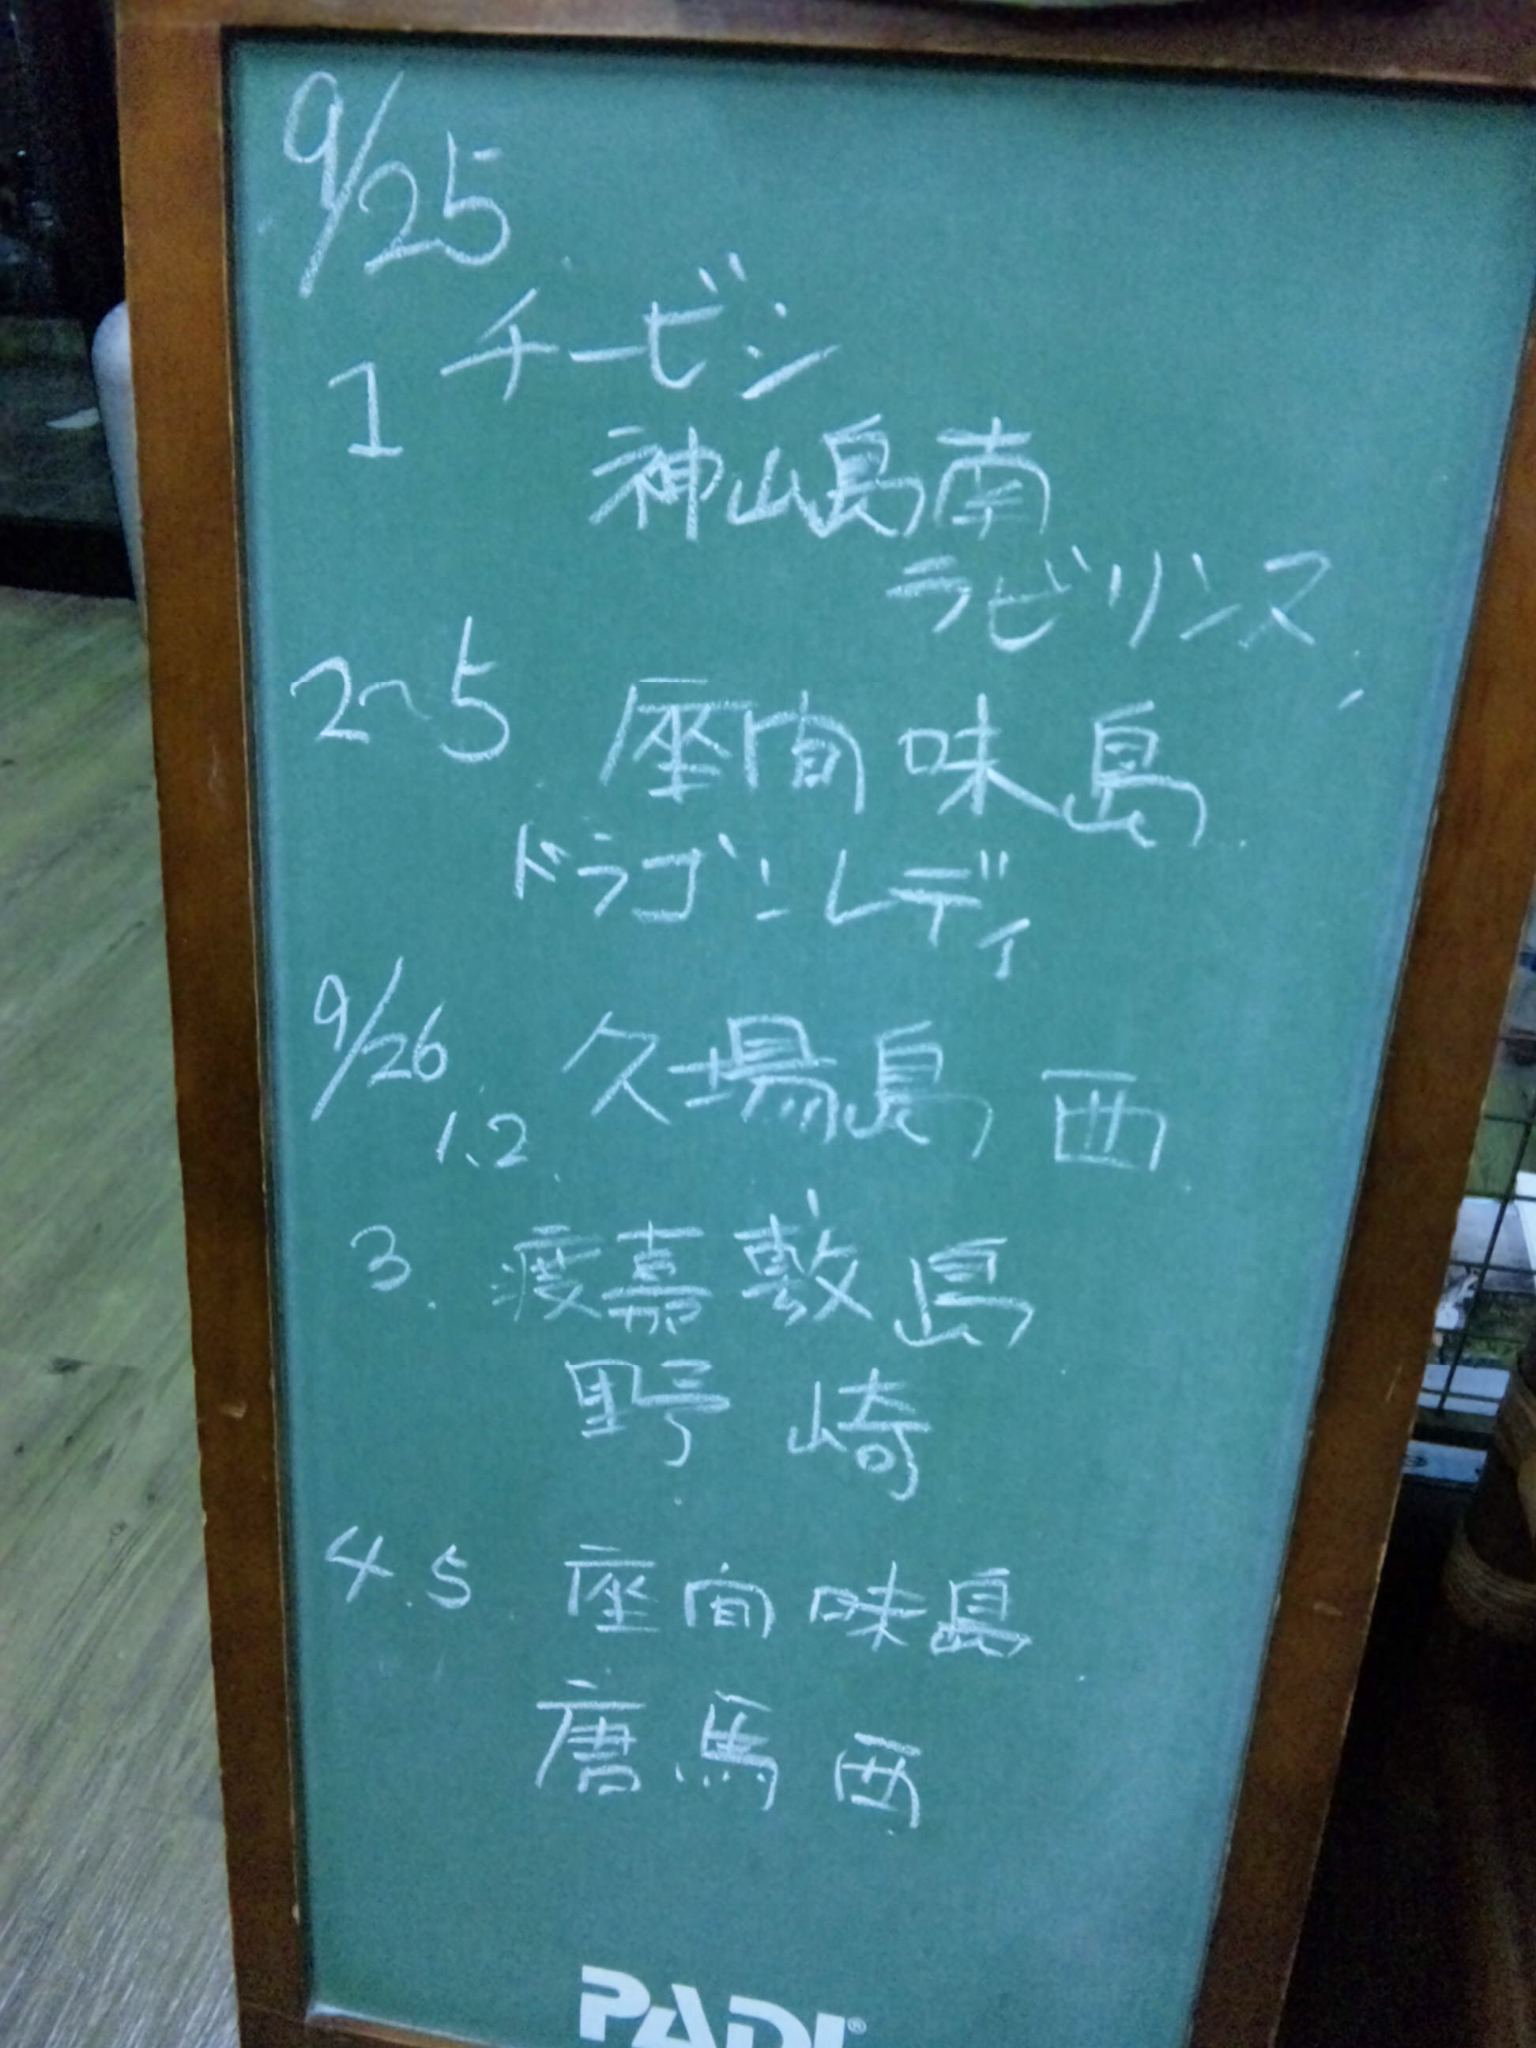 9/25
チービシ
1
神山島南
ラビリンス
2~5 座間味島
ドラゴンレディ
9/26 久場島 西
1.2
3. 渡嘉敷島
野崎
4.5 座間味島
唐馬西
PADI®